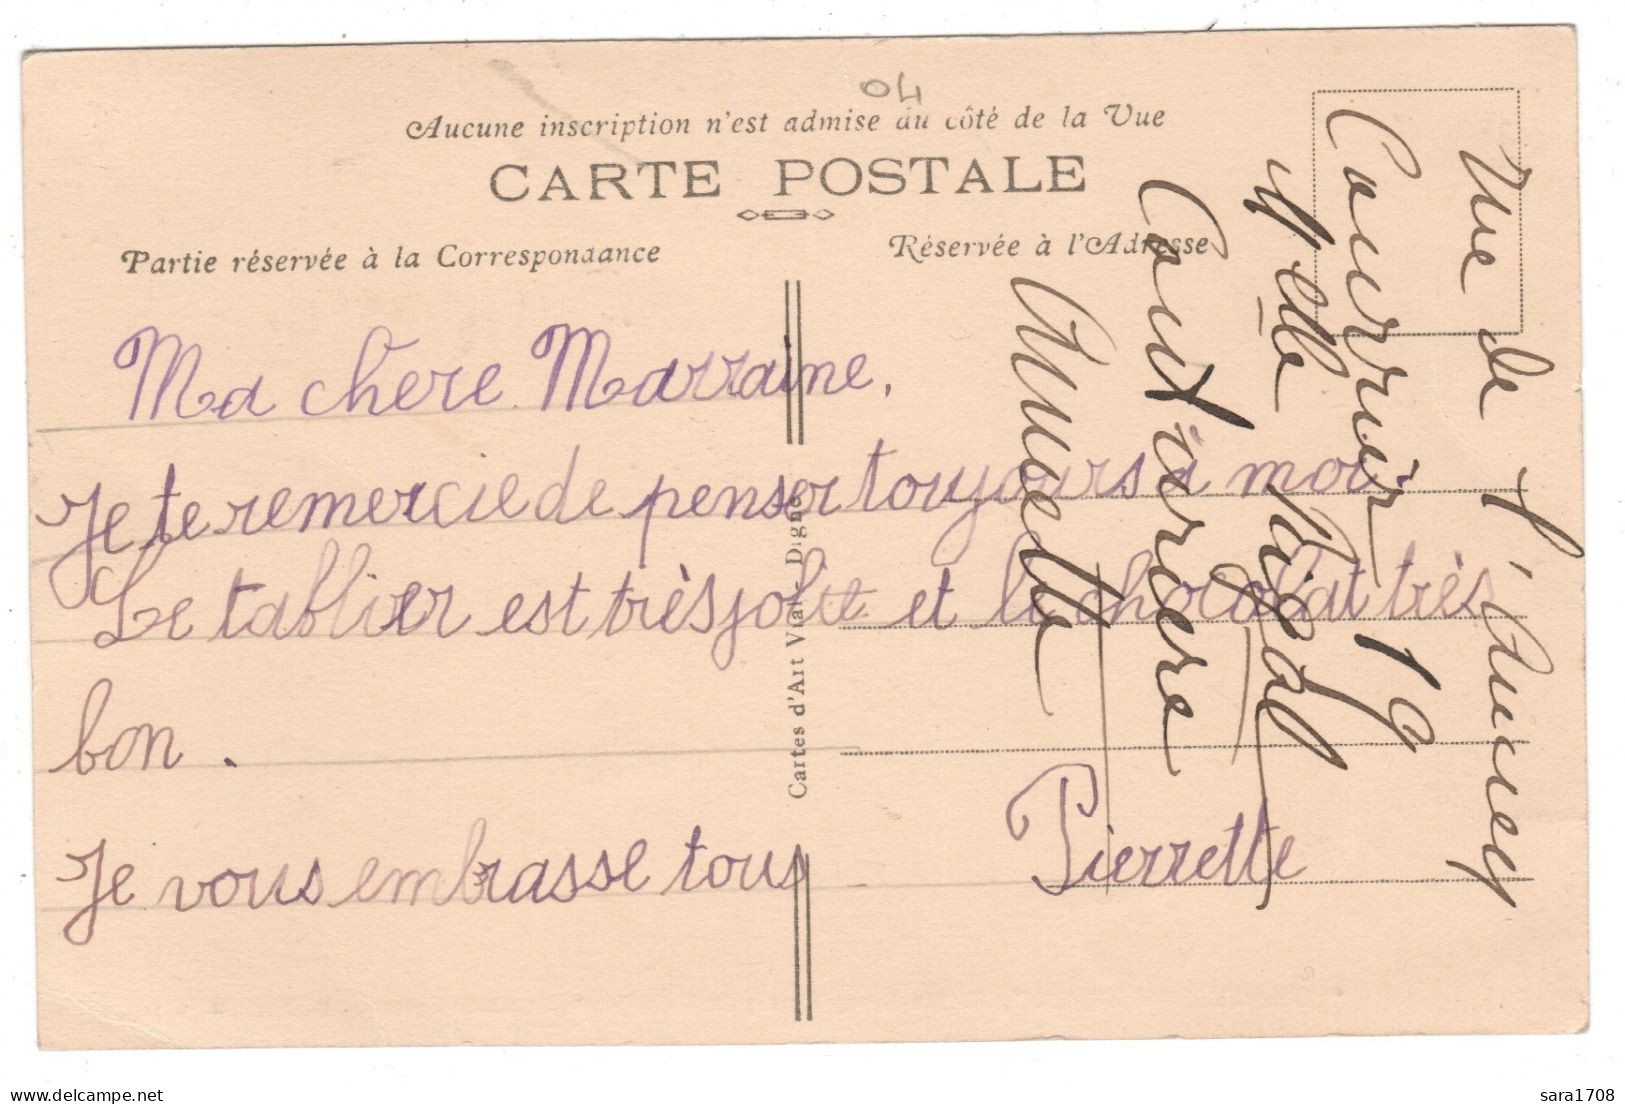 04
Aucune inscription n'est admise du côté de la Vue
CARTE POSTALE
Partie réservée à la Correspondance
Réservée à l'Adresse
Ma chère Marraine,
Je te remercie de penser toujours à moi
Le tablier est très joli et le chocolat très
bon.
Je vous embrasse tous
Pierrette
Cartes d'Art Vial - Digne
Vue de
Courrier 19
Melle Rigal
Couturière
Annuelle
sara1708